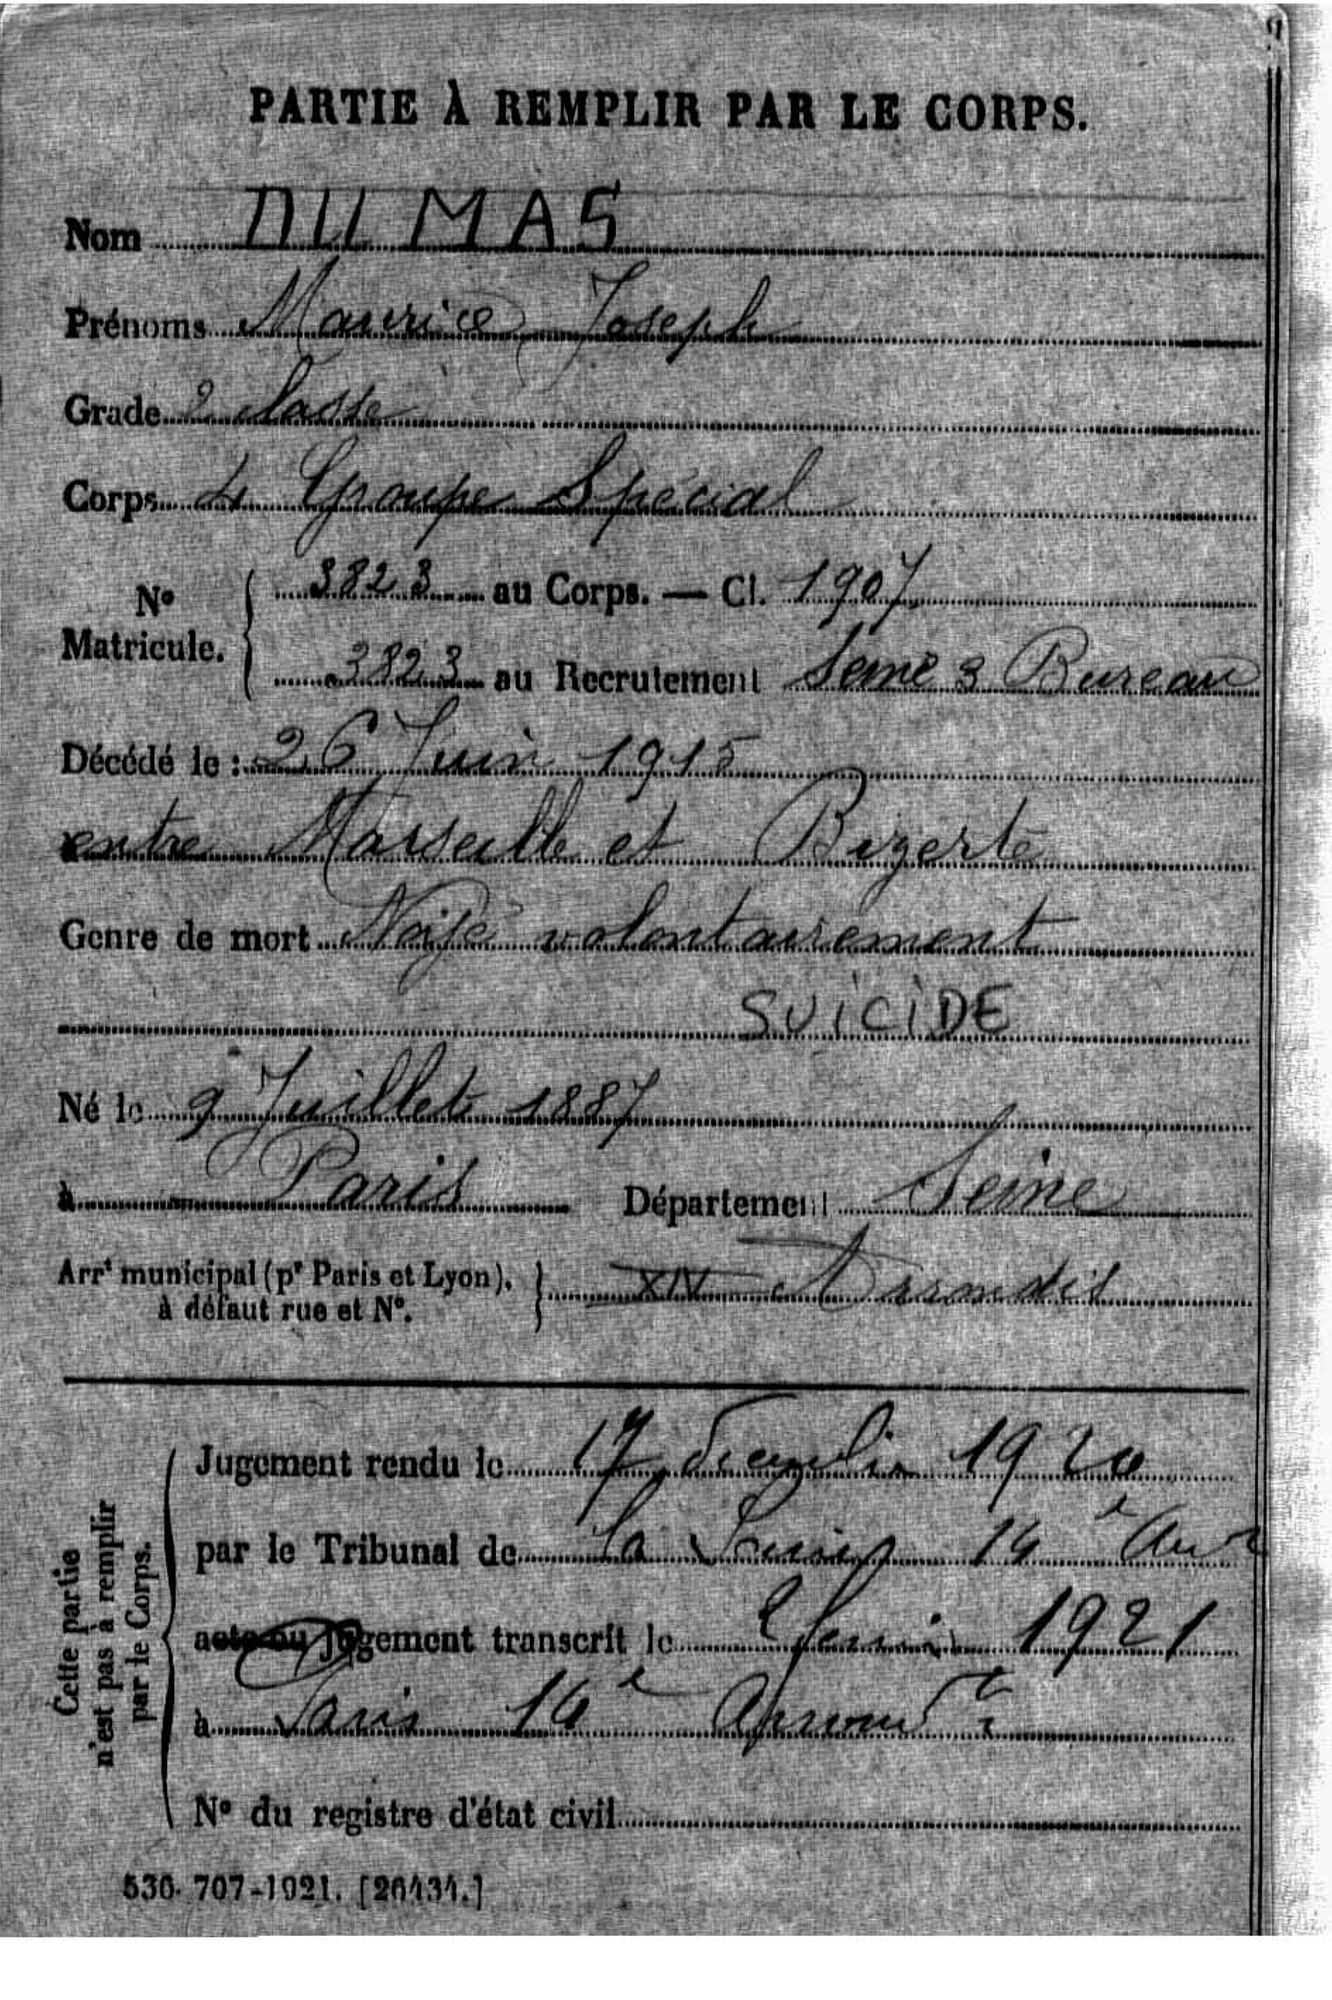 PARTIE À REMPLIR PAR LE CORPS.
Nom DUMAS
Prénoms Maurice, Joseph
Grade 2 classe
Corps 4 Groupe Spécial
N° Matricule. 3823 au Corps. — Cl. 1907
3823 au Recrutement Seine 3 Bureau
Décédé le : 26 Juin 1915
entre Marseille et Bizerte
Genre de mort Noyé volontairement
SUICIDE
Né le 9 Juillet 1887
à Paris Département Seine
Arrt municipal (pr Paris et Lyon), à défaut rue et N°. XIV Arrondis
Cette partie n'est pas à remplir par le Corps.
Jugement rendu le 17 décembre 1920
par le Tribunal de la Seine 14e Arrt
acte ou jugement transcrit le 1921
à Paris 14e Arrondt
N° du registre d'état civil
530-707-1921. [26434.]